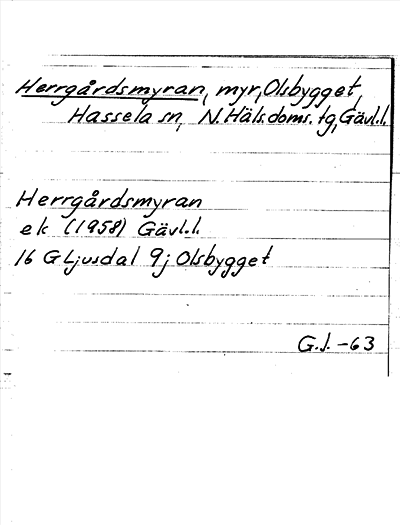 Herrgårdsmyran, myr, Olsbygget,
Hassela sn, N. Häls. doms. tg, Gävl.l.
Herrgårdsmyran
ek (1958) Gävl.l.
16 G Ljusdal 9j Olsbygget
G.J. -63